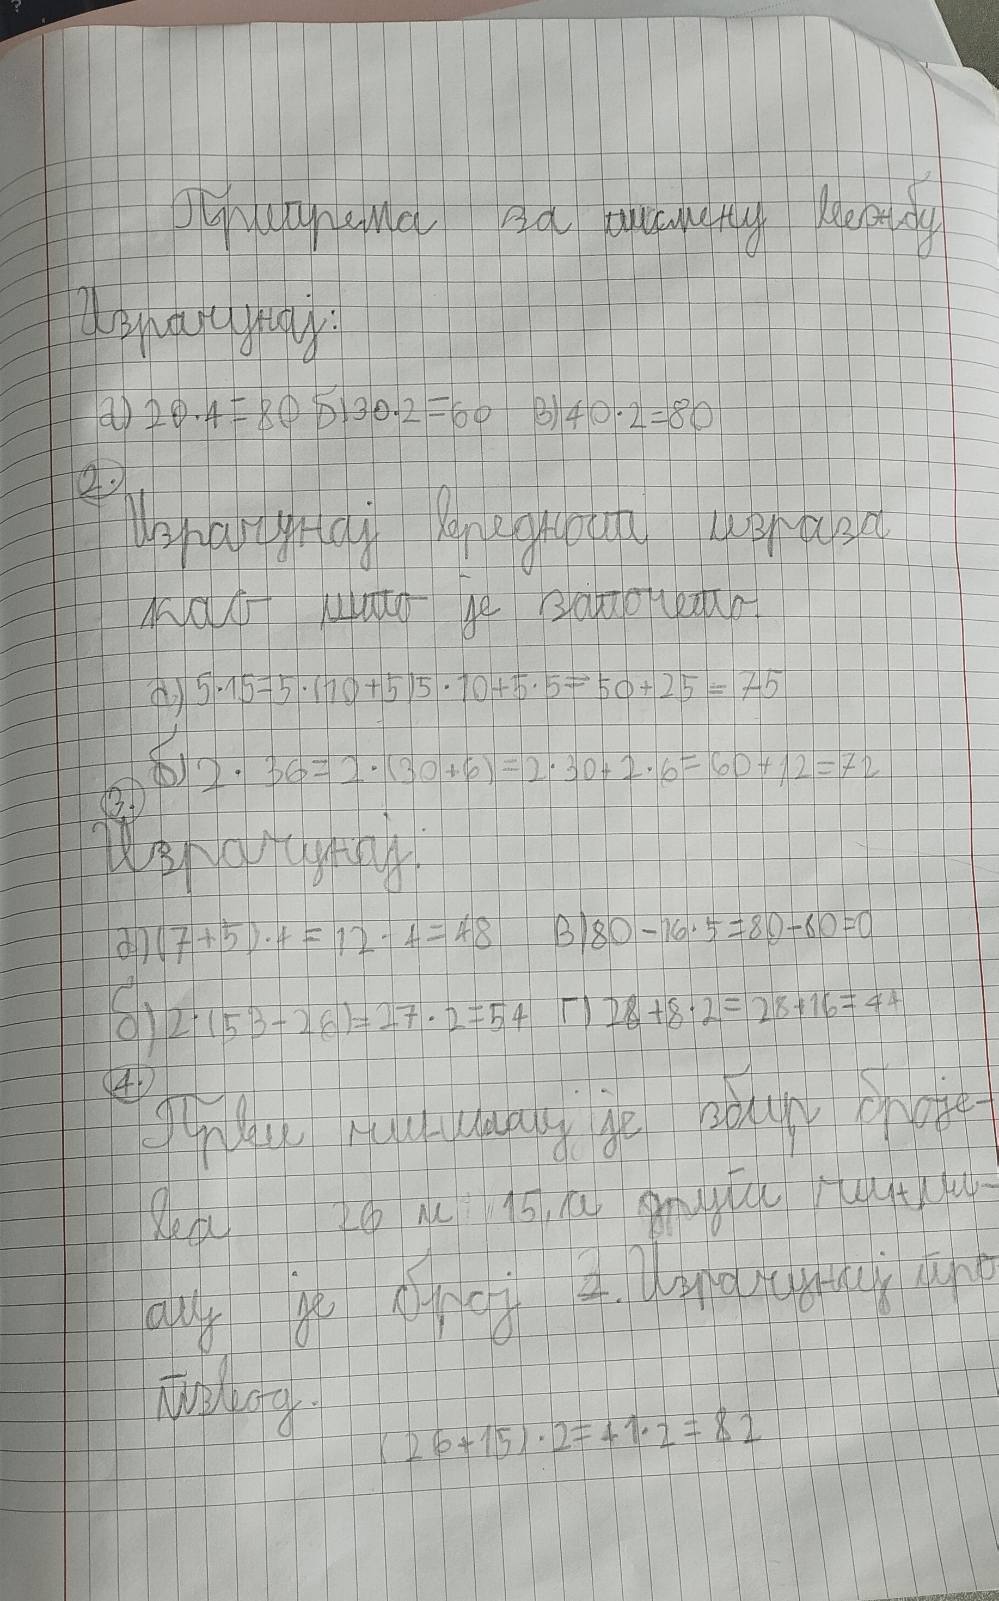 Припрема за писмену вежбу
Израчунај:
а) 20·4=80 б) 30·2=60 в) 40·2=80
2.
Израчунај вредност израза
као што је започето.
а) 5·15=5·(10+5)5·10+5·5=50+25=75
б) 2·36=2·(30+6)=2·30+2·6=60+12=72
3.
Израчунај:
а) (7+5)·4=12·4=48 в) 80-16·5=80-80=0
б) 2·(53-26)=27·2=54 г) 28+8·2=28+16=44
4.
Први чинилац је збир броје-
ва 26 и 15, а други чинили-
ац је број 2. Израчунај про
извод.
(26+15)·2=41·2=82